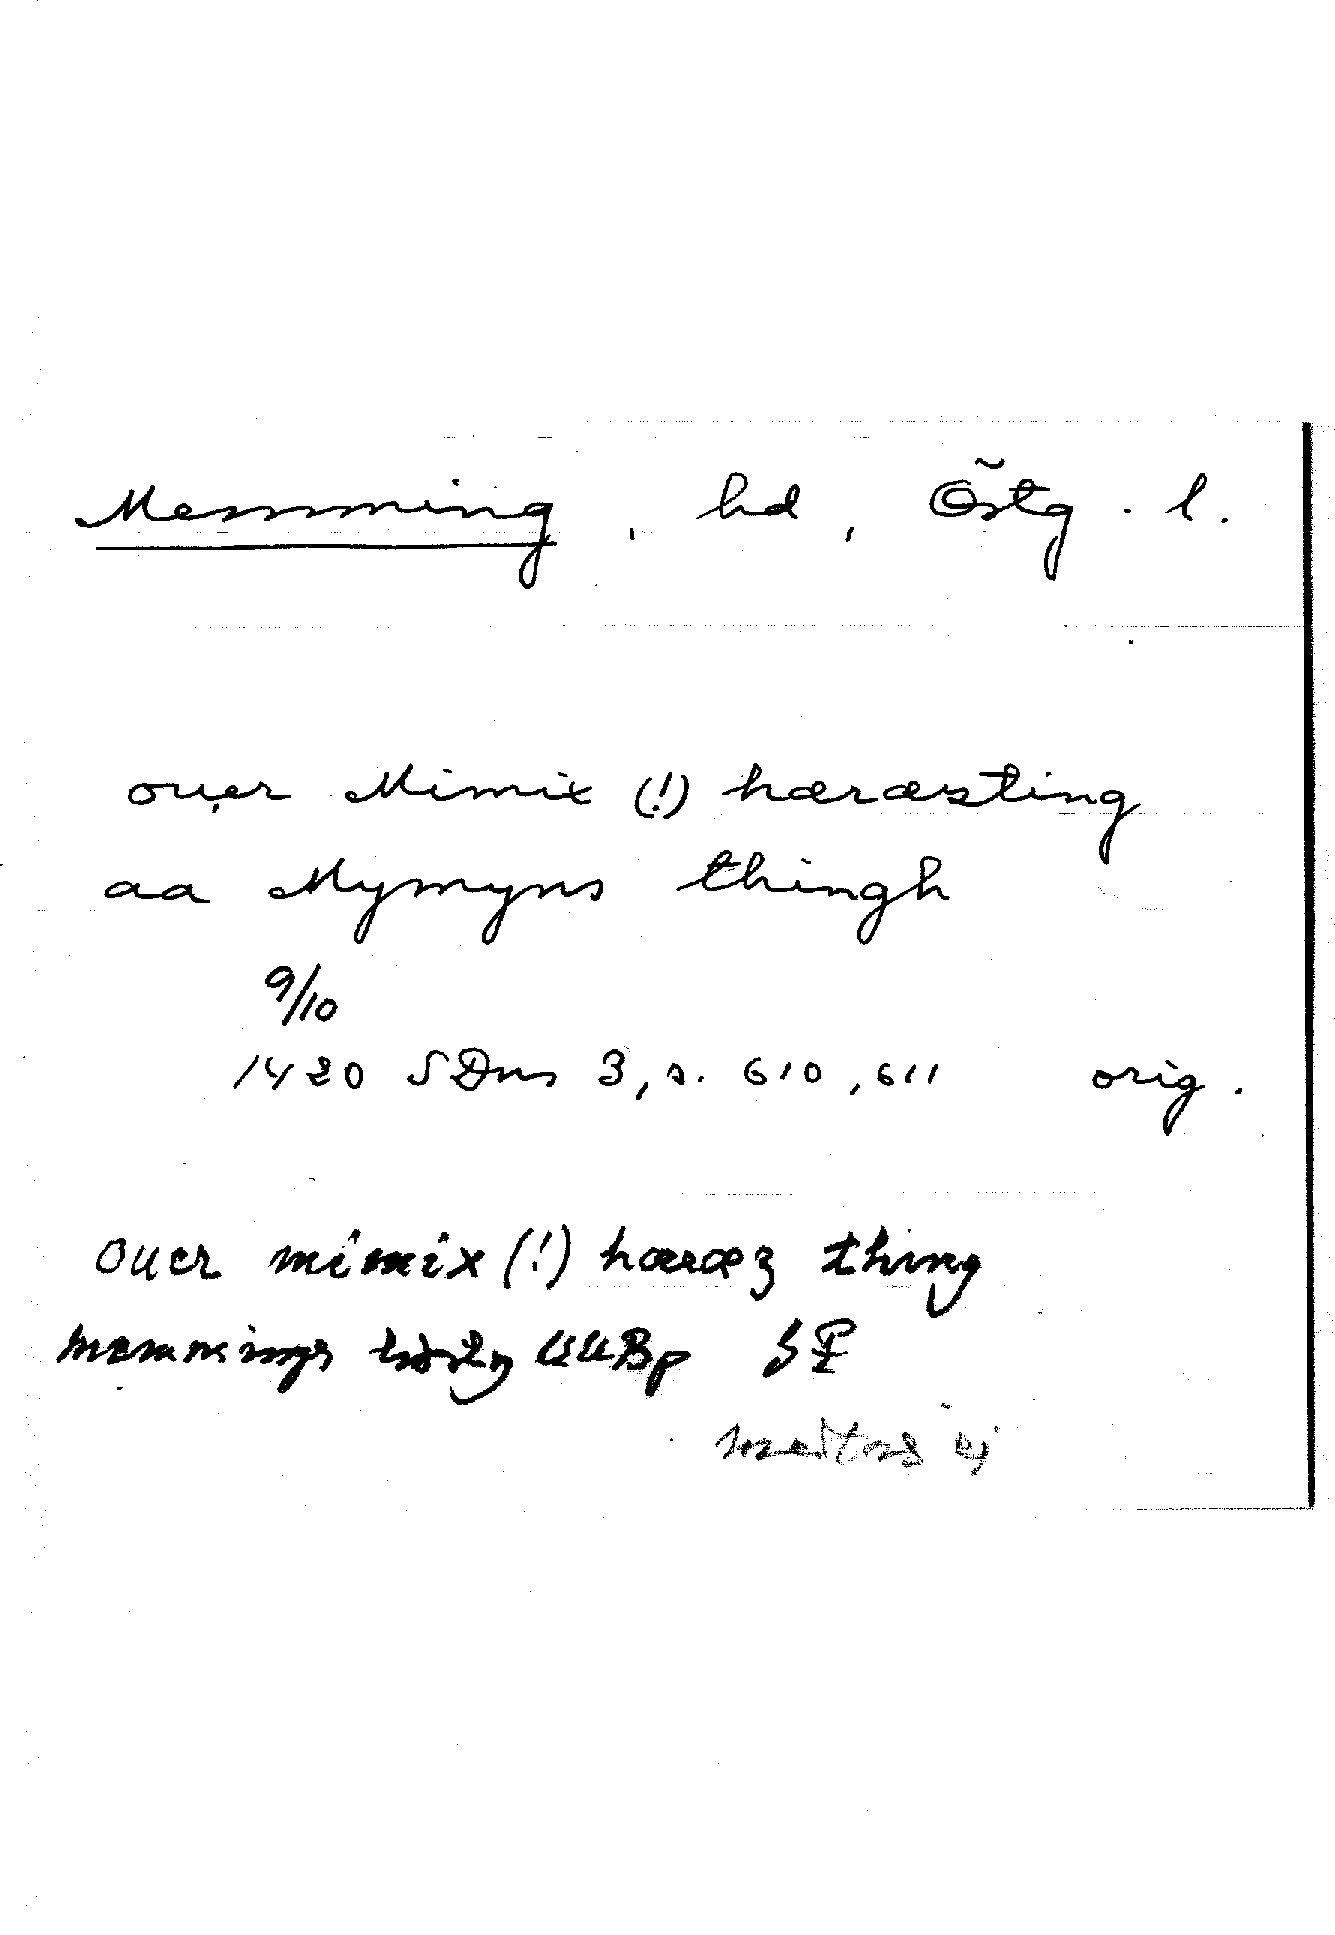 Memming, hd, Östg. l.
ouer Mimix (!) hæræsting
aa Mymyns thingh
9/10
1420 SDns 3, s. 610, 611 orig.
ouer mimix (!) hæræz thing